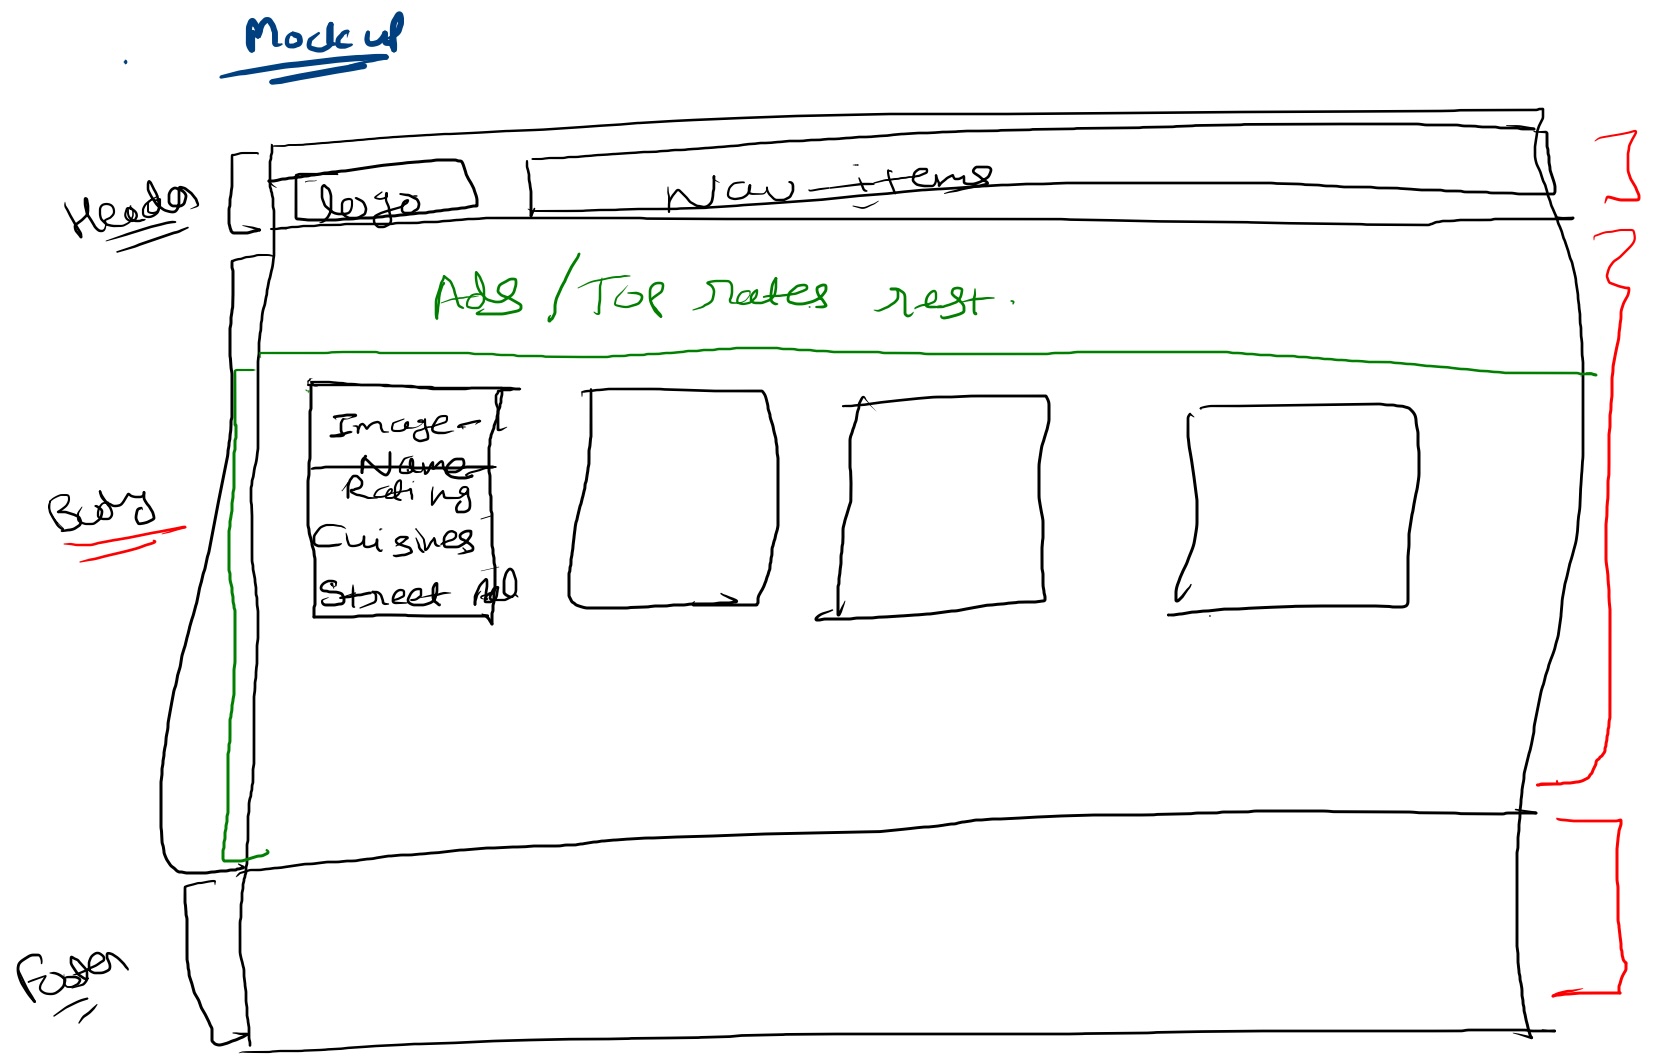 Mock up
Header
logo
Nav items
Ads / Top rates rest.
Body
Image
Name
Rating
Cuisines
Street Ad
Footer